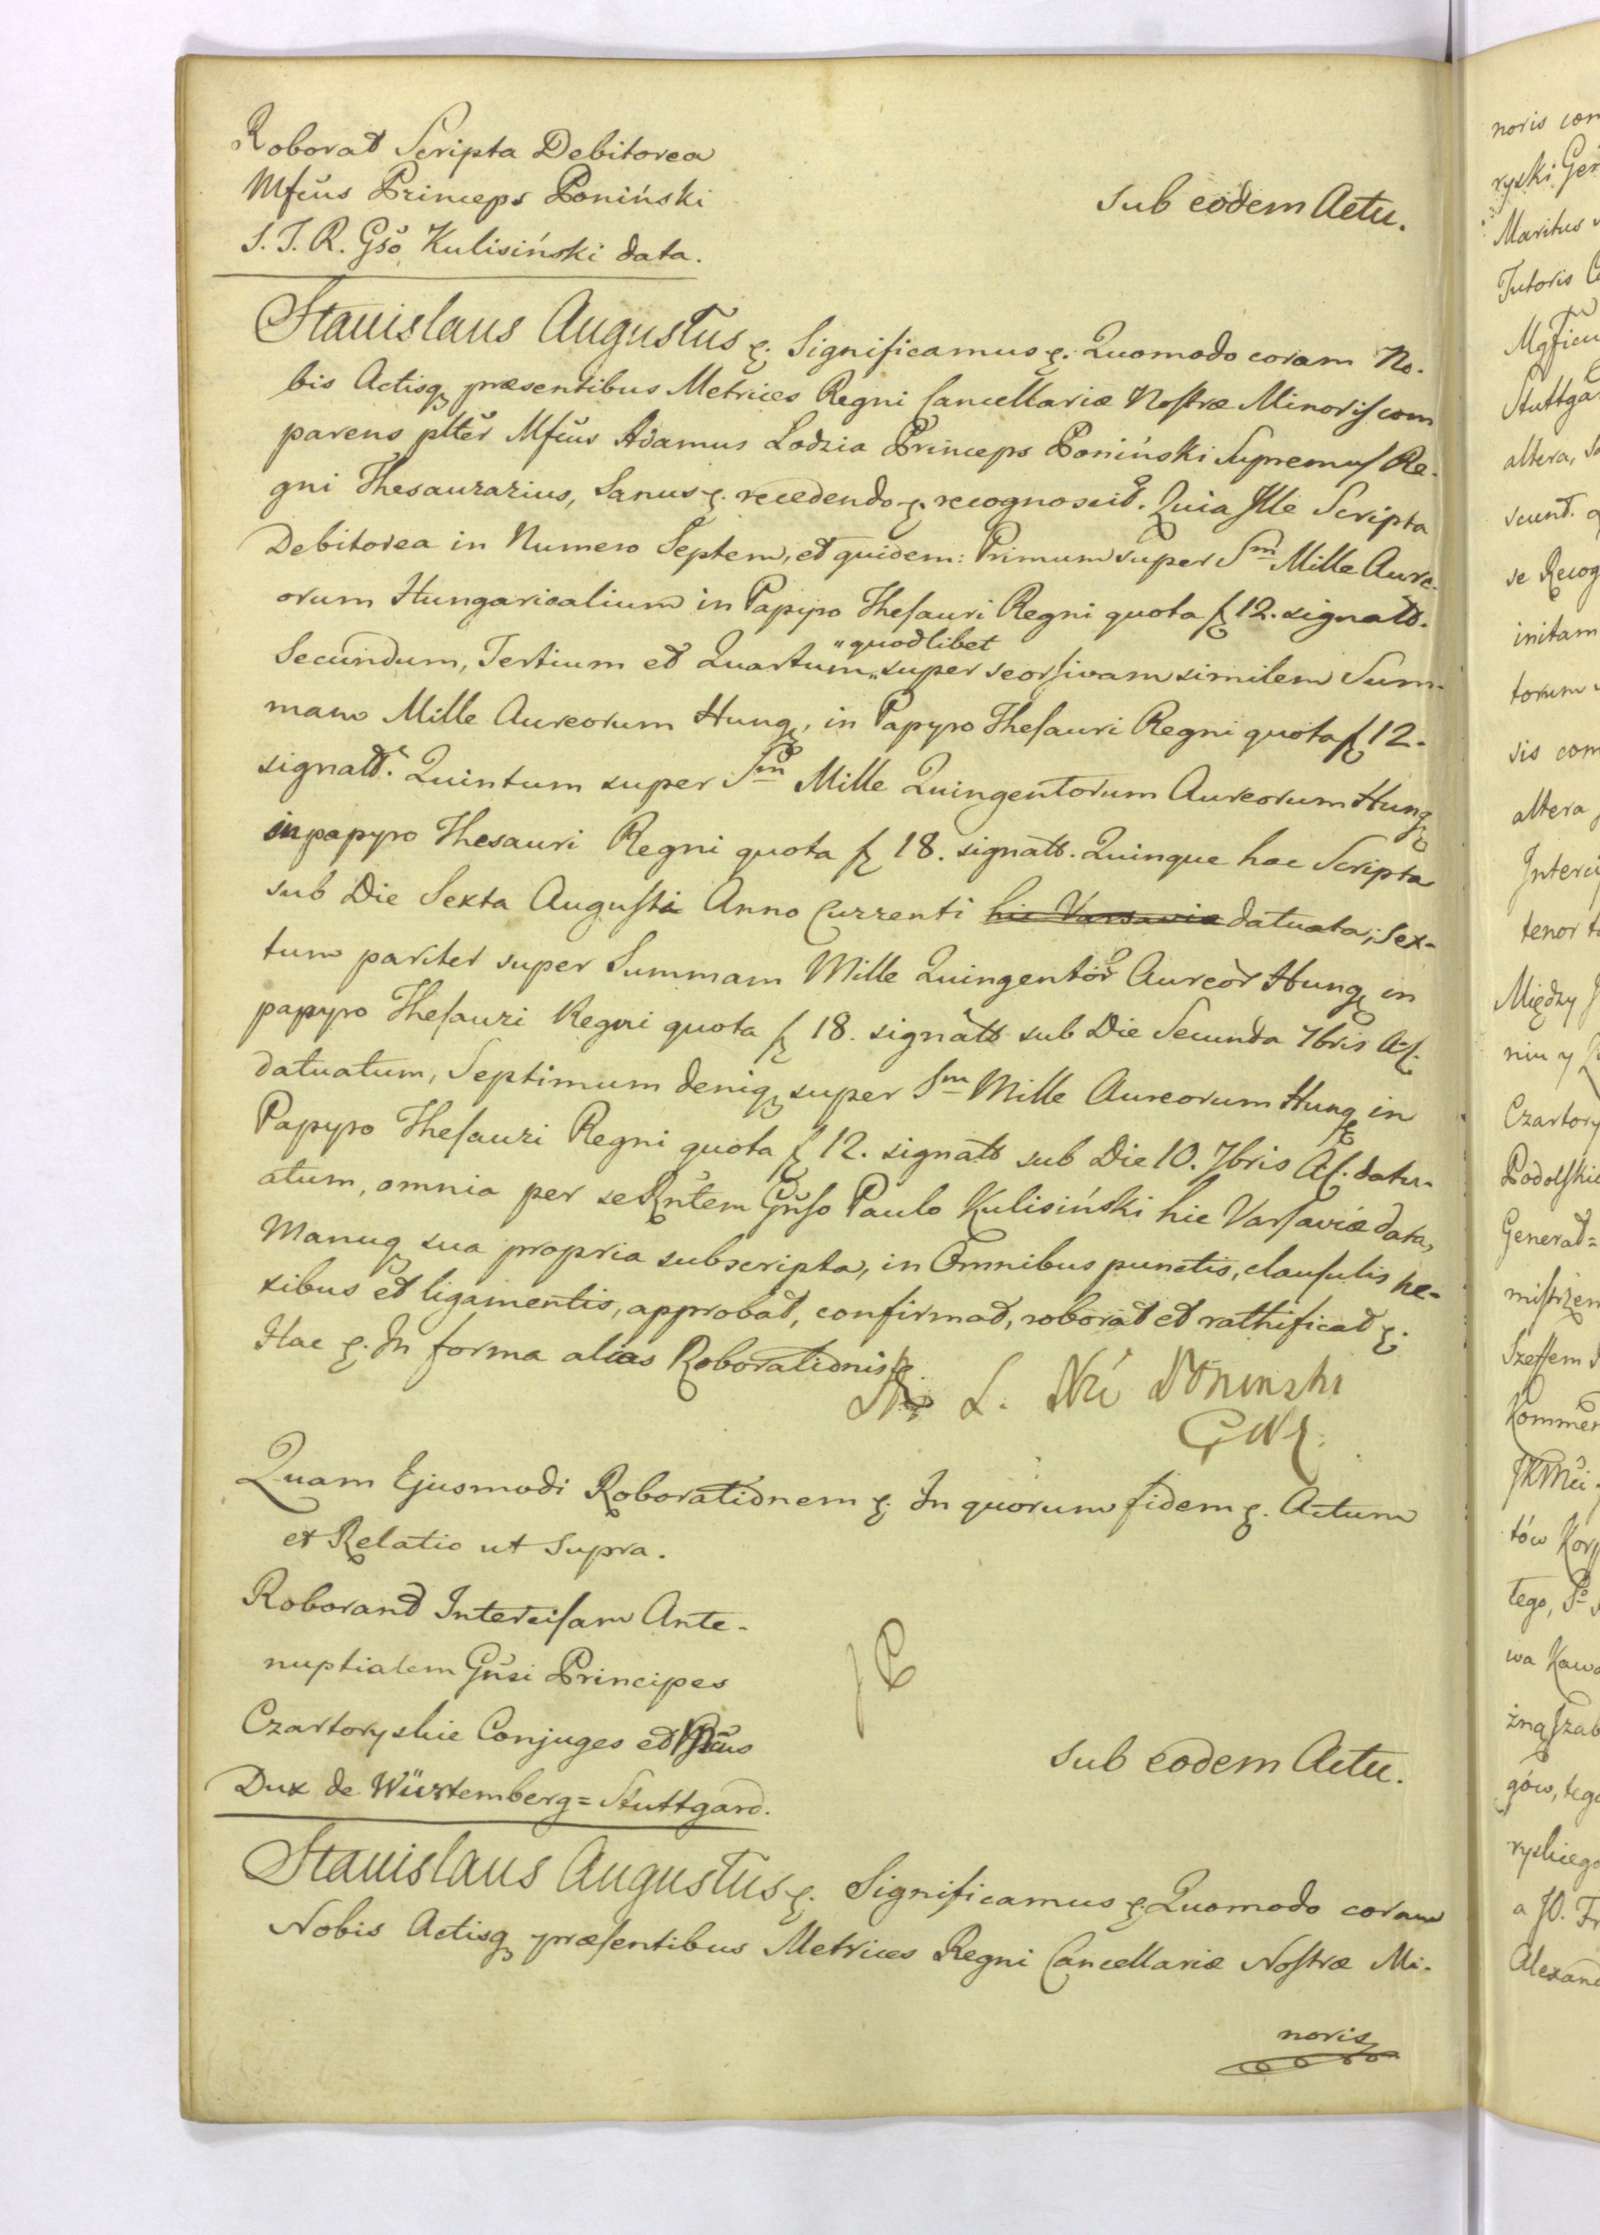 Roborat Scripta Debitorea
Mfcus Princeps Poniński
S. T. R. Gso Kulisiński data.
Sub eodem Actu.
Stanislaus Augustus &. Significamus &. Quomodo coram No-
bis Actisq præsentibus Metrices Regni Cancellariæ Nostræ Minoris com
parens plter Mfcus Adamus Lodzia Princeps Poniński Supremus Re-
gni Thesaurarius, Sanus &. recedendo &. recognoscit. Quia Ille Scripta
Debitorea in Numero Septem, et quidem: Primum super Sm Mille Aure-
orum Hungaricalium in Papyro Thesauri Regni quota fl 12. signato.
Secundum, Tertium et Quartum „quodlibet„ super seorsivam similem Sum-
mam Mille Aureorum Hung, in Papyro Thesauri Regni quota fl 12.
signato. Quintum super Sm Mille Quingentorum Aureorum Hung
in papyro Thesauri Regni quota fl 18. signato. Quinque hac Scripta
sub Die Sexta Augusti Anno Currenti hic Varsaviæ datuata; Sex-
tum pariter super Summam Mille Quingentor Aureor Hung in
papyro Thesauri Regni quota fl 18. signato sub Die Secunda 7bris A.c.
datuatum, Septimum deniq super Sm Mille Aureorum Hung in
Papyro Thesauri Regni quota fl 12. signato sub Die 10. 7bris A.c. datu-
atum, omnia per se Rntem Gnso Paulo Kulisiński hic Varsaviæ data,
Manuq sua propria subscripta, in Omnibus punctis, clausulis ne-
xibus et ligamentis, approbat, confirmat, roborat et rathificat &.
Hac &. In forma alias Roborationis &.
Poninski
Quam Ejusmodi Roborationem &. In quorum fidem &. Actum
et Relatio ut supra.
Roborant Intercisam Ante-
nuptialem Gnsi Principes
Czartoryskie Conjuges et
Dux de Würtemberg=Stuttgard.
Sub eodem Actu.
Stanislaus Augustus &. Significamus & Quomodo coram
Nobis Actisq præsentibus Metrices Regni Cancellariæ Nostræ Mi-
noris
noris com
ryski
Maritus
Tutoris
Stuttga
altera,
scunt.
se Recog
initam
torum
sis com
altera
Interci
tenor
Między
niu y
Czartory
Podolski
Generał=
Szeffem
Kommen
tów Kor
tego,
wa Kawa
gów, tego
ryskiego
a JO. Fr
Alexand